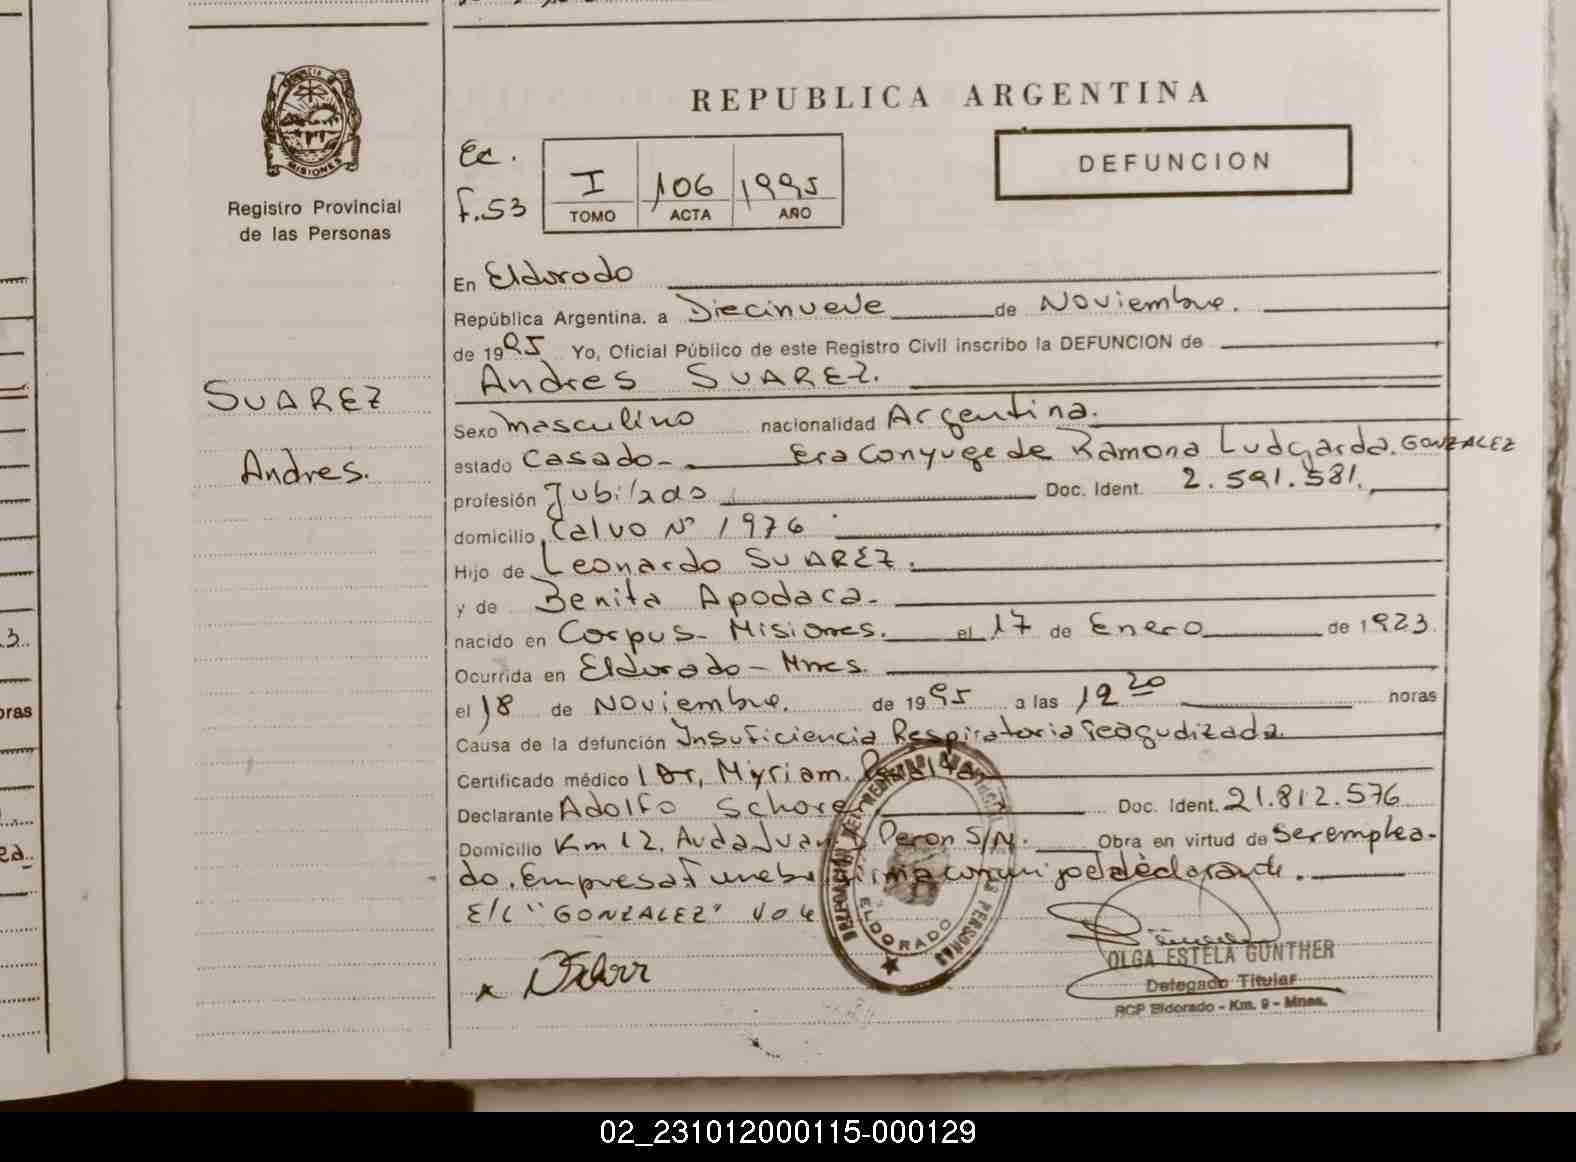 REPUBLICA ARGENTINA
PROVINCIA D
MISIONES
Registro Provincial
de las Personas
Ec.
F.53
I 106 1995
TOMO ACTA AÑO
DEFUNCION
En Eldorado
República Argentina. a Diecinueve de Noviembre.
de 1995 Yo, Oficial Público de este Registro Civil inscribo la DEFUNCION de
Andres SUAREZ.
SUAREZ
Andres.
Sexo masculino nacionalidad Argentina.
estado Casado- Era Conyuge de Ramona Ludgarda. GONZALEZ
profesión Jubilado Doc. Ident. 2.591.581.
domicilio Calvo Nº 1976
Hijo de Leonardo SUAREZ.
y de Benita Apodaca-
nacido en Corpus- Misiones. el 17 de Enero de 1923
Ocurrida en Eldorado - Mnes.
el 18 de Noviembre. de 1995 a las 19 20 horas
Causa de la defunción Insuficiencia Respiratoria Reagudizada
Certificado médico Dr, Myriam.
Declarante Adolfo Doc. Ident. 21.812.576
Domicilio Km 12. Avda Juan Peron S/N. Obra en virtud de Ser emplea-
do. Empresa Funebre firma conmigo el declarante.
E/L "GONZALEZ" Vale
DELEGACION DEL REGISTRO PROVINCIAL DE LAS PERSONAS
ELDORADO
OLGA ESTELA GUNTHER
Delegado Titular
RCP Eldorado - Km. 9 - Mnes.
3..
oras
ea..
02_231012000115-000129